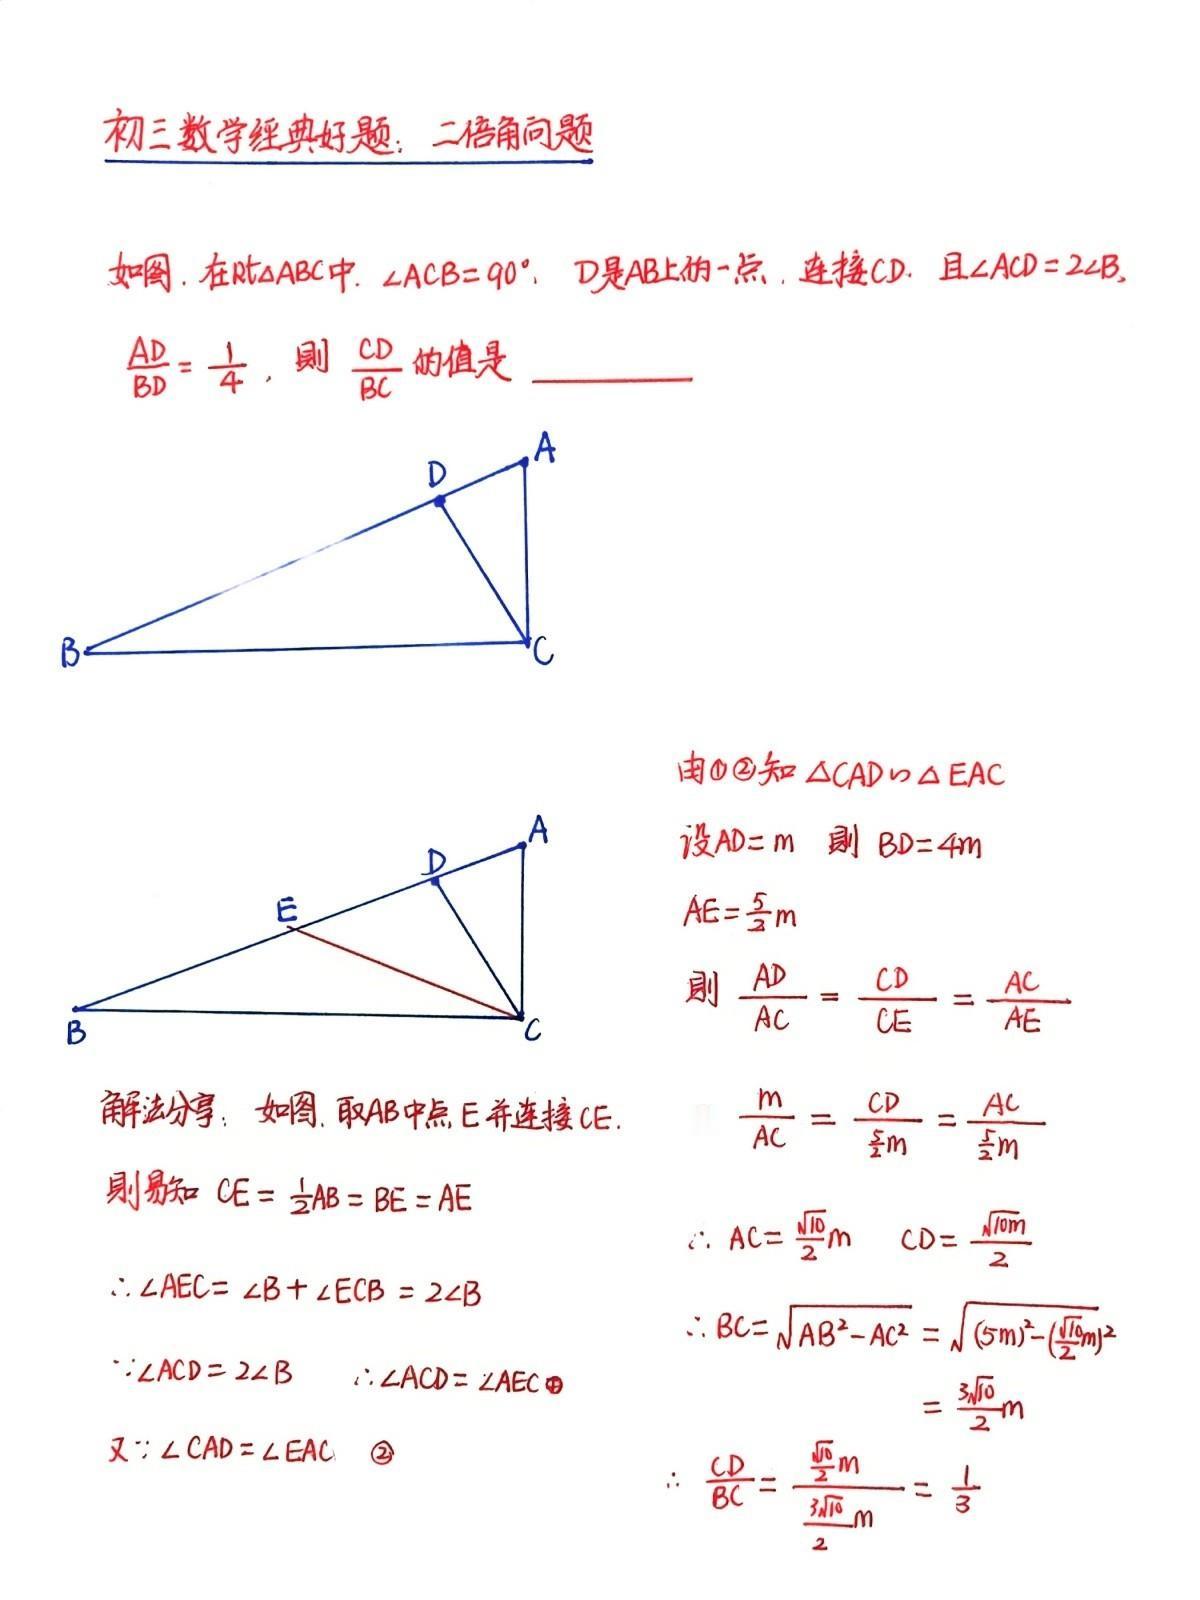 初三数学经典好题：二倍角问题
如图，在Rt△ABC中，∠ACB=90°，D是AB上的一点，连接CD，且∠ACD=2∠B，
AD/BD = 1/4，则 CD/BC 的值是 ______
A
D
B
C
A
D
E
B
C
解法分享：如图，取AB中点E并连接CE．
则易知 CE = 1/2AB = BE = AE
∴∠AEC = ∠B + ∠ECB = 2∠B
∵∠ACD = 2∠B ∴∠ACD = ∠AEC ①
又∵∠CAD = ∠EAC ②
由①②知 △CAD∽△EAC
设AD = m 则 BD = 4m
AE = 5/2 m
则 AD/AC = CD/CE = AC/AE
m/AC = CD/(5/2 m) = AC/(5/2 m)
∴ AC = √10/2 m CD = √10m/2
∴ BC = √(AB² − AC²) = √((5m)² − (√10/2 m)²)
= 3√10/2 m
∴ CD/BC = (√10/2 m)/(3√10/2 m) = 1/3